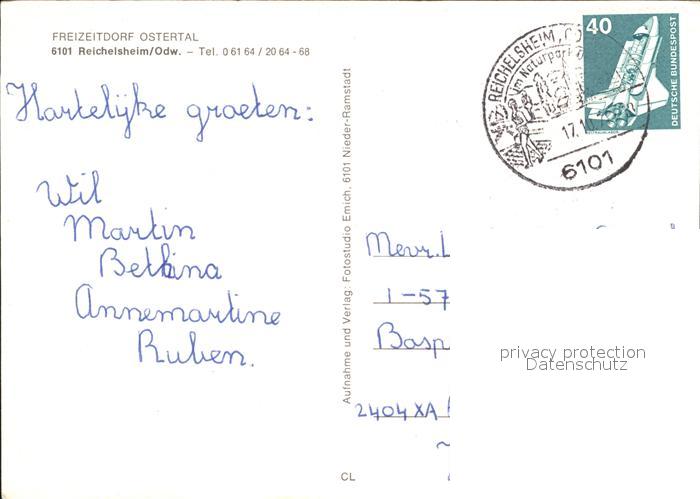 FREIZEITDORF OSTERTAL
6101 Reichelsheim/Odw. – Tel. 0 61 64 / 20 64 - 68
Hartelijke groeten:
Wil
Martin
Bettina
Annemartine
Ruben.
Aufnahme und Verlag: Fotostudio Emich, 6101 Nieder-Ramstadt
CL
REICHELSHEIM,
im Naturpark
17.10
6101
40
DEUTSCHE BUNDESPOST
Mevr.
1-57
Basp
2404 XA
privacy protection
Datenschutz